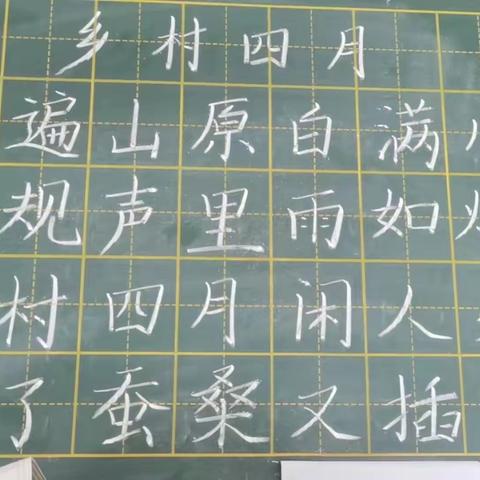 乡村四月
遍山原白满
规声里雨如
村四月闲人
了蚕桑又插